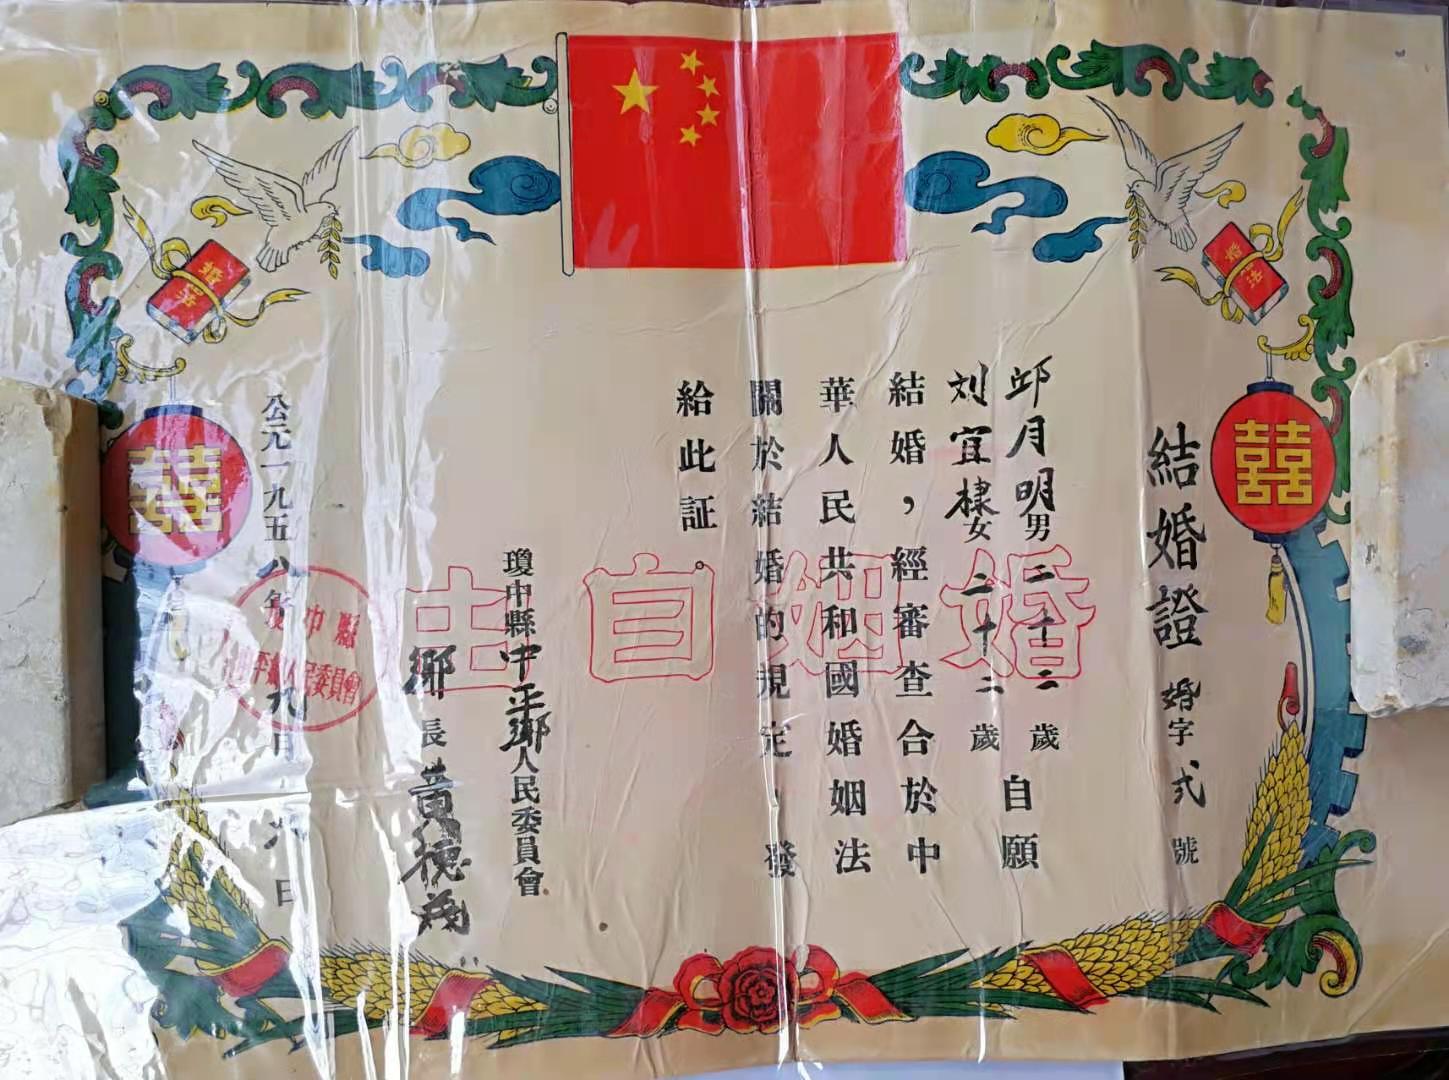 結婚證 婚字式號
邱月明男二十二歲自願
刘宜棣女二十二歲
結婚，經審查合於中
華人民共和國婚姻法
關於結婚的規定，發
給此証。
瓊中縣中平鄉人民委員會
鄉長黄德茂
公元一九五八年九月九日
婚姻自由
囍
囍
婚法